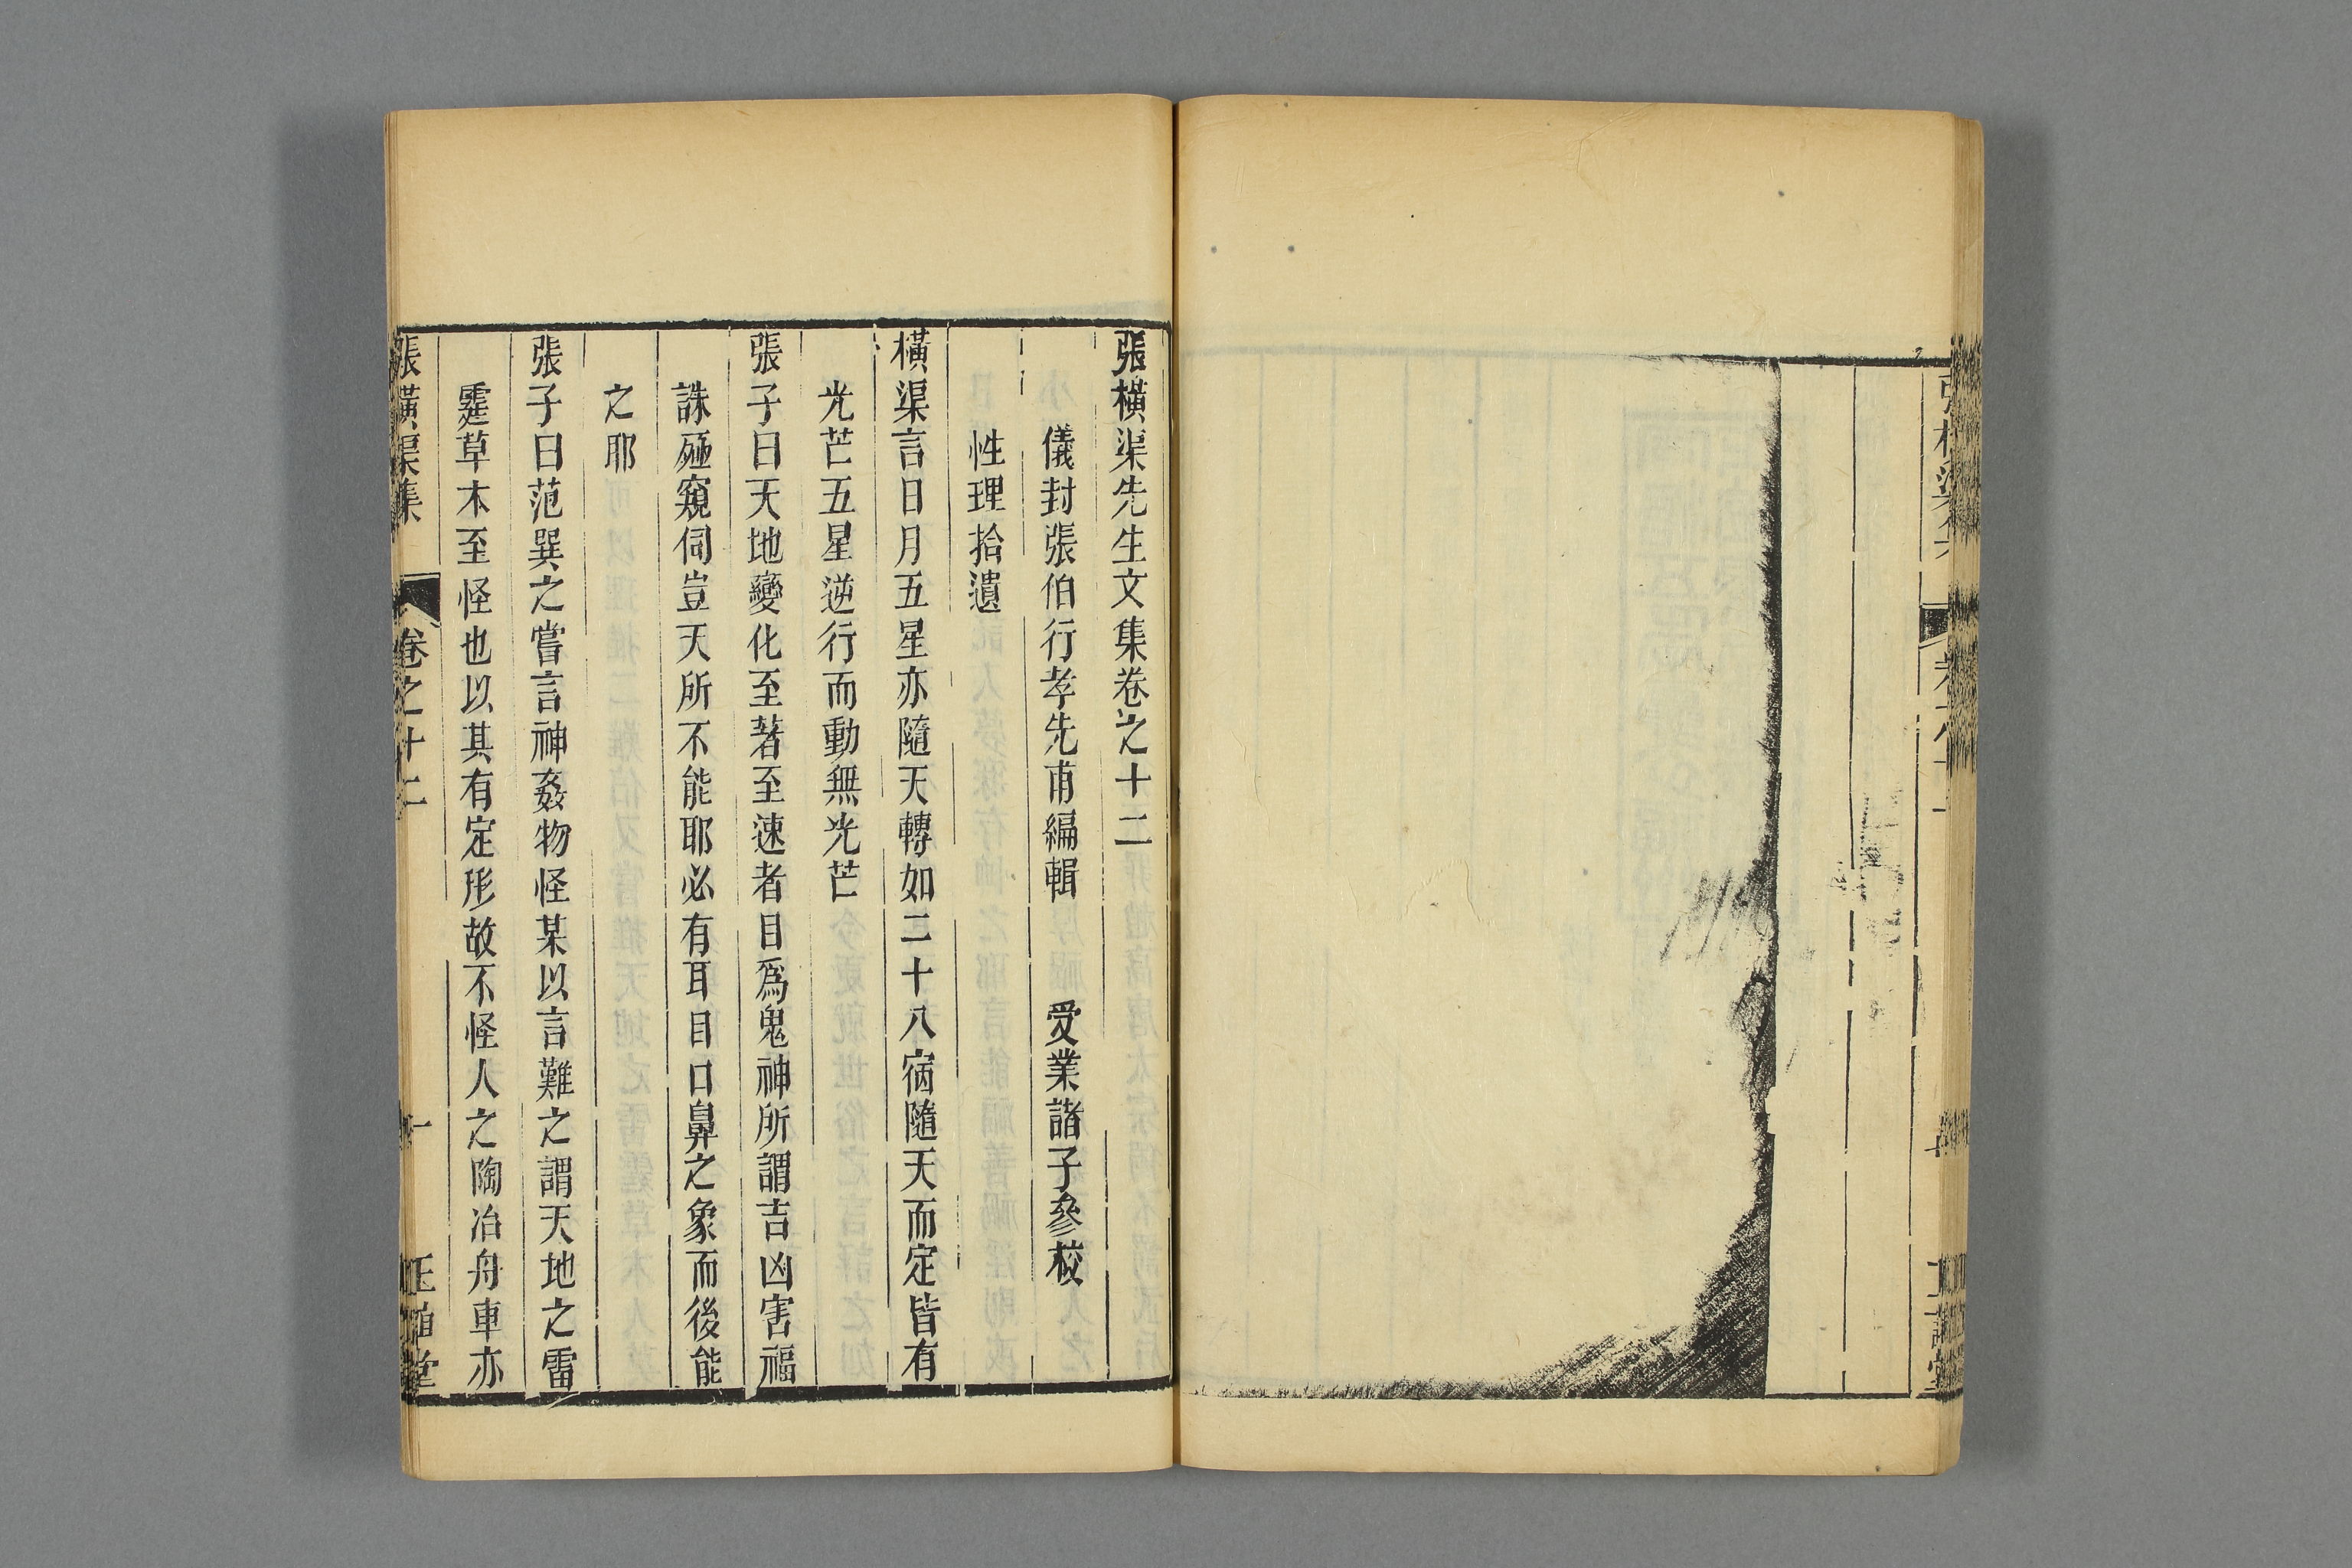 張橫渠先生文集卷之十二
儀封張伯行孝先甫編輯　受業諸子參校
性理拾遺
橫渠言日月五星亦隨天轉如二十八宿隨天而定皆有
光芒五星逆行而動無光芒
張子曰天地變化至著至速者目爲鬼神所謂吉凶害福
誅殛窺伺豈天所不能耶必有耳目口鼻之象而後能
之耶
張子曰范巽之嘗言神姦物怪某以言難之謂天地之雷
霆草木至怪也以其有定形故不怪人之陶冶舟車亦
張橫渠集　卷之十二　一　正誼堂